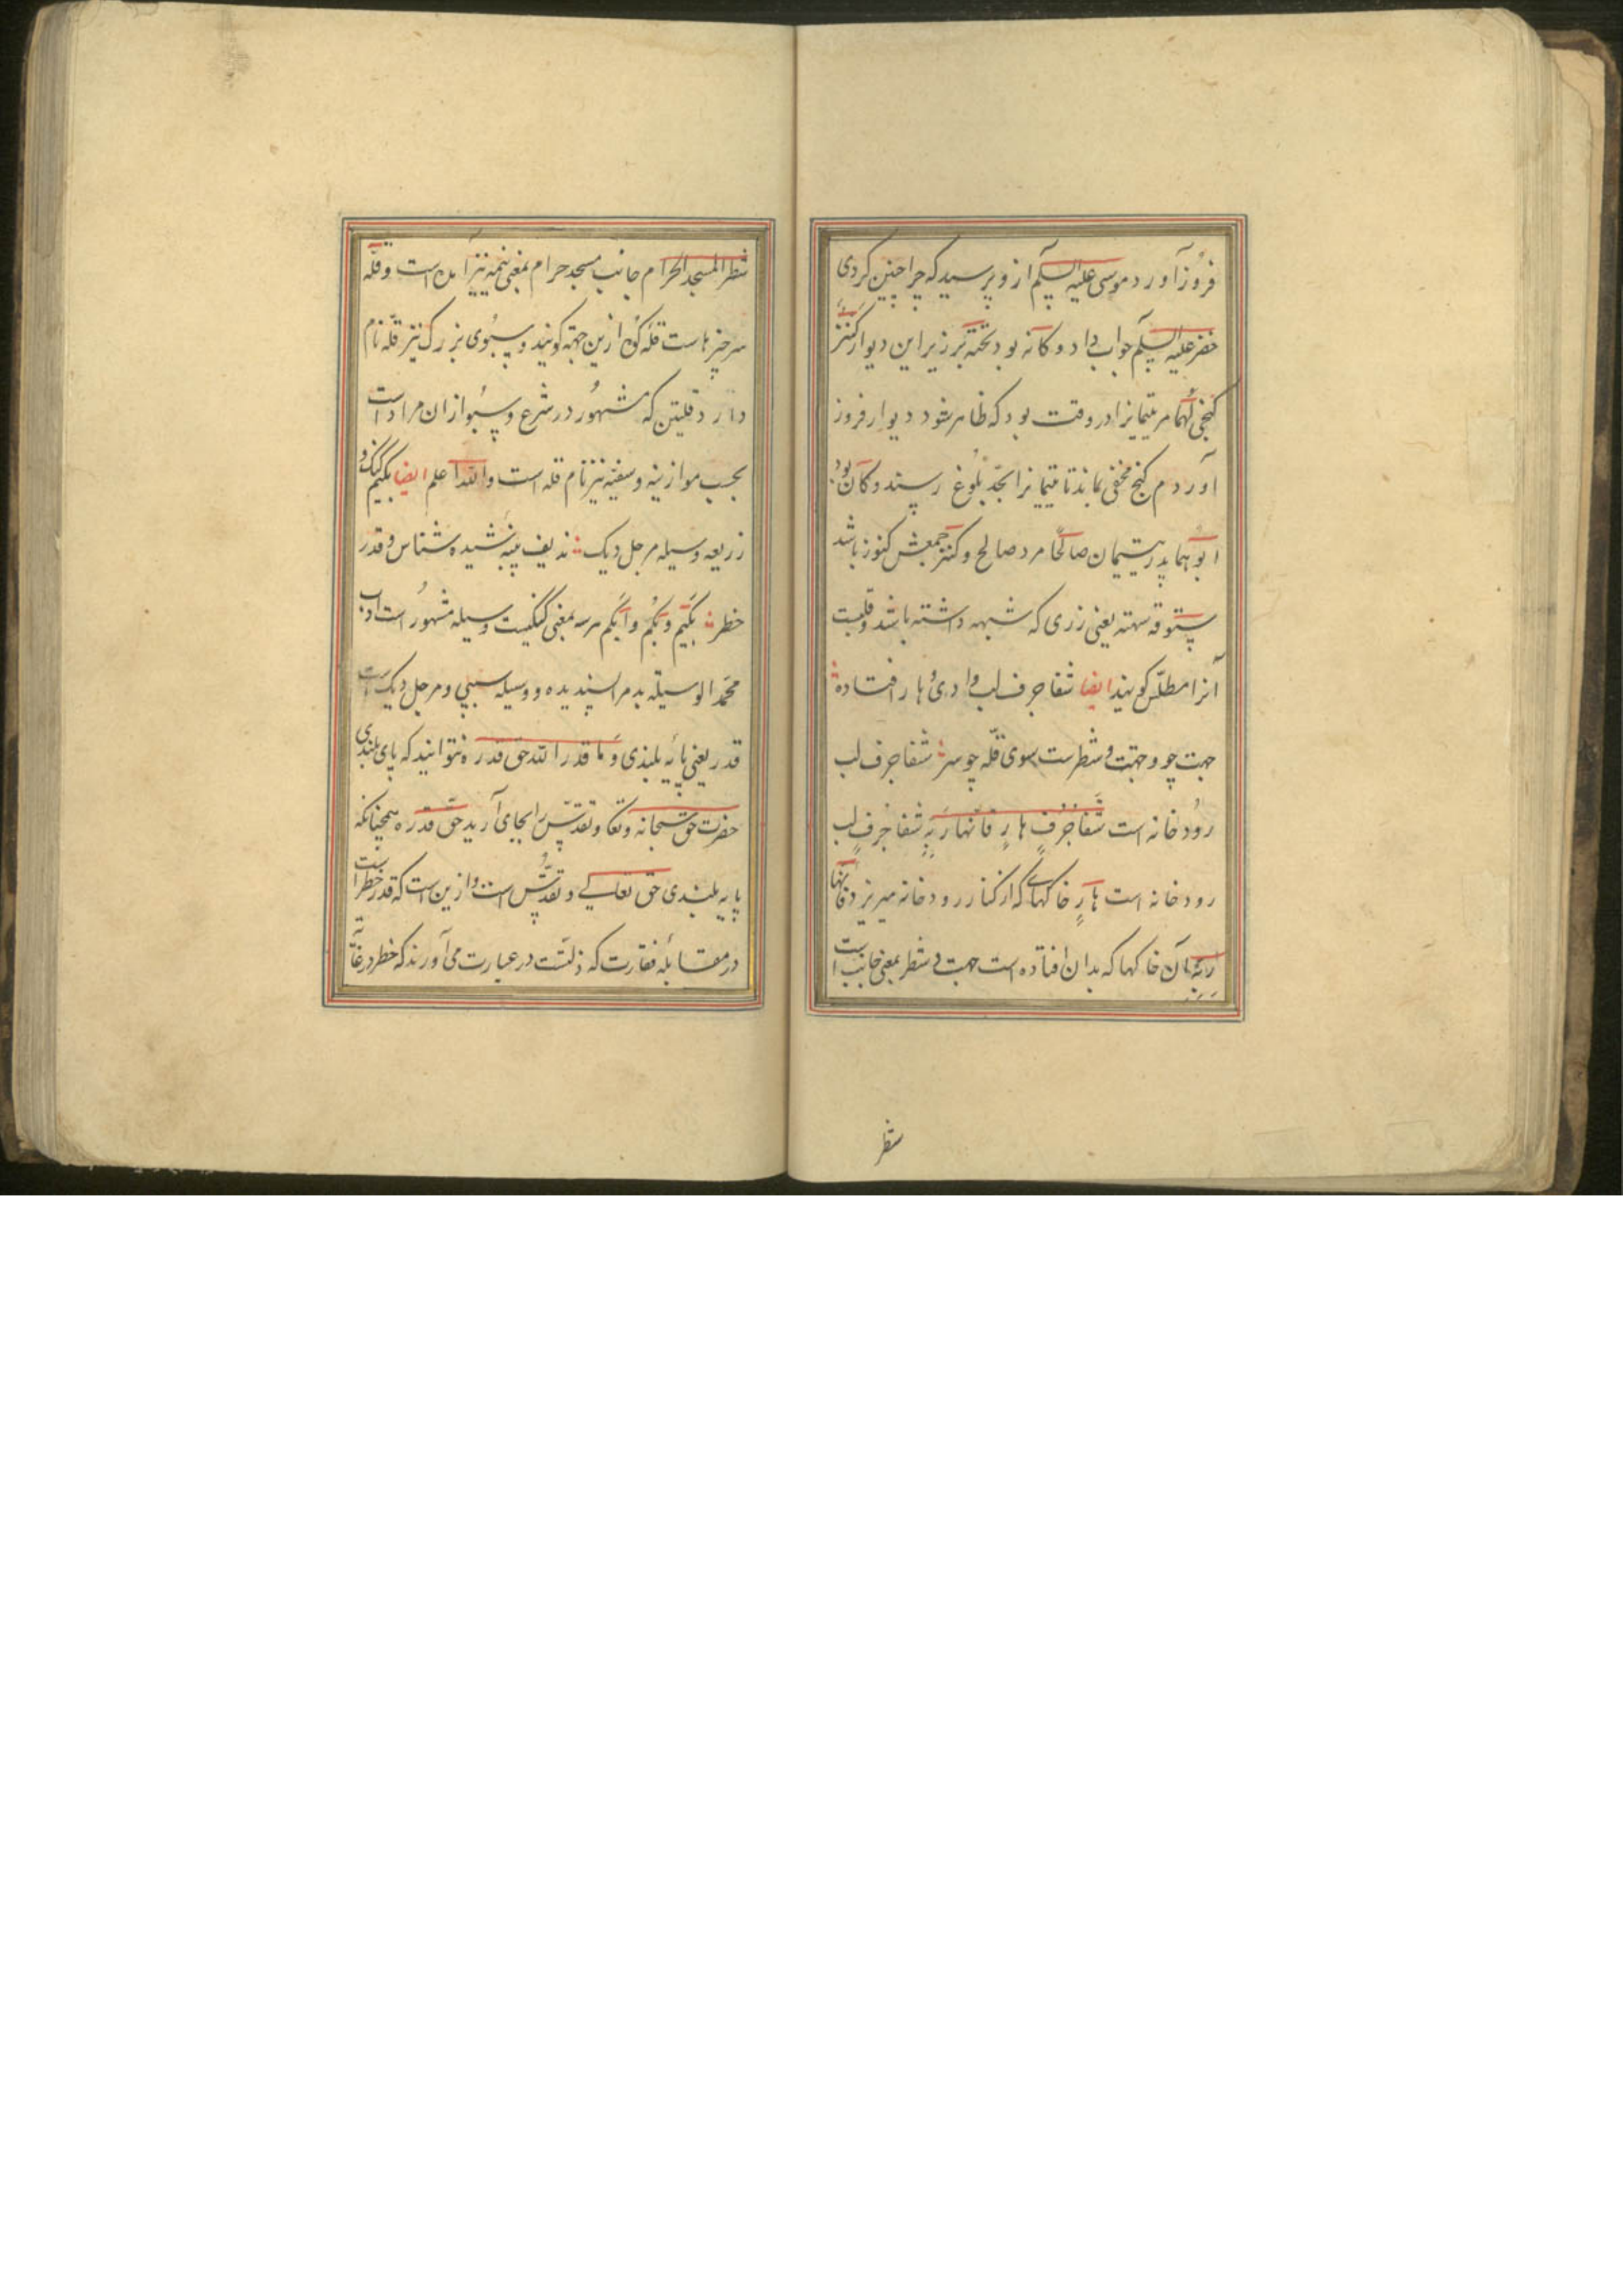 فروز آورد موسی علیه السلم ازو پرسید که چرا چنین کردی
خضر علیه السلم جواب داد و کانه بود تحته بر زیر این دیوار کنز
گنجی لهما مر یتیمانرا در وقت بود که ظاهر شود دیوار فروز
آوردم گنج مخفی بماند تا یتیمانرا بحد بلوغ رسیند و کان بود
ابوهما پدر یتیمان صالحا مرد صالح و کنز جمعش کنوز باشد
ستوقه سهته یعنی زری که شبهه داشته باشد و قلبیت
آنرا مطلس گویند ایضا شفا جرف لب وادی هار افتاده
جهت چو وجهت و شطرست سوی قله چو سر شفا جرف لب
رودخانه است شفا جرف هار فانهار به شفا جرف لب
رودخانه است هار خاکهای که از کنار رودخانه میریزد فانها
ربه آن خاکها که بدان افتاده است جهت و شطر بمعنی جانب است
شطر
شطر المسجد الحرام جانب مسجد حرام بمعنی نیمه نیز آمده است و قله
سر چیزهاست قله کوه ازین جهة گویند و سبوی بزرگ نیز قله نام
دارد قلتین که مشهور در شرع و سبو ازان مراد است
بحسب موازینه و سفینه نیز نام قله است والله اعلم ایضا بکیم گنگ و
زریعه وسیله مرجل دیگ ندیف پنبه شیده شناس و قدر
خطر بکیم و بکم و ابکم هر سه بمعنی گنگیست وسیله مشهور است اداب
محمد الوسیلة بدمرا پسندیده و وسیله سببی و مرجل دیگ است
قدر یعنی پایه بلندی و ما قدر الله حق قدره نتوانید که پای بلندی
حضرت حق سبحانه و تعا و تقدس را بجای آرید حق قدره همچنانکه
پایه بلندی حق تعالی و تقدس است و ازین است که قدر خطر است
در مقابله فقارت که ذلتست در عبارت می آورند که خطر در غایة